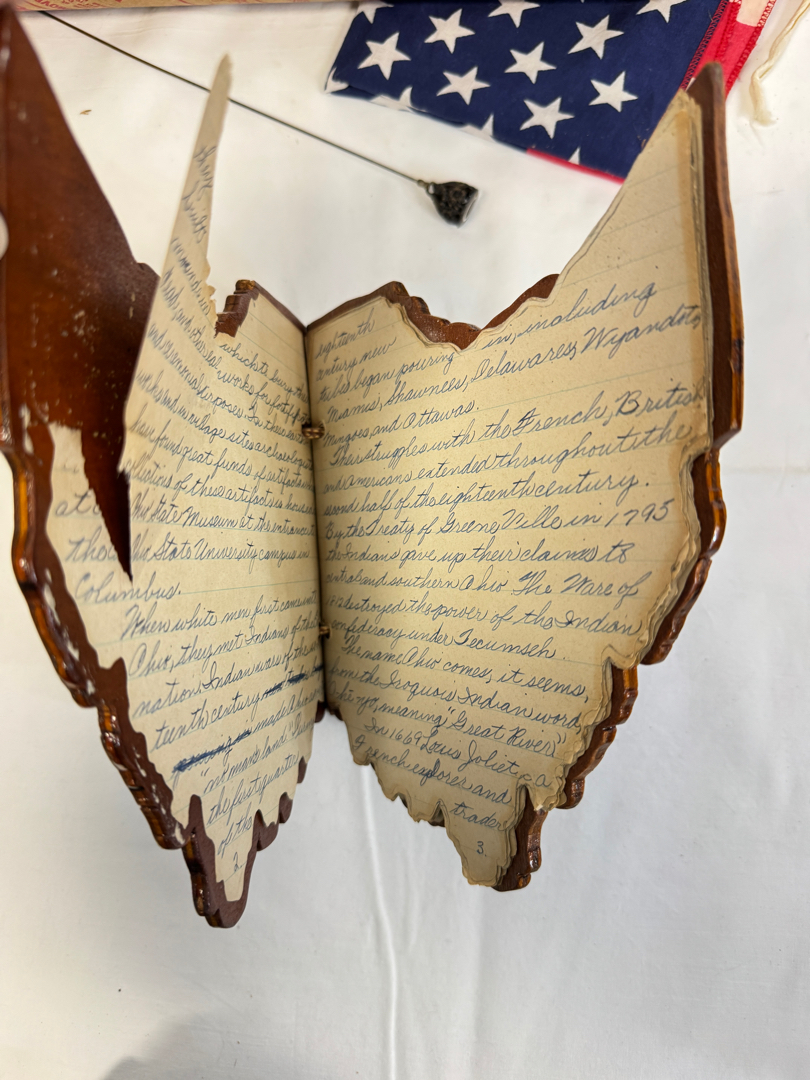 which to bury the
works for fortifi
and ceremonial purposes. In these earth
works and in village sites archaeologists
have found great funds of artifacts.
collections of these artifacts is housed in
Ohio State Museum at the entrance to
the Ohio State University campus in
Columbus.
When white men first came into
Ohio, they met Indians of the
nation. Indian wars of the seven
teenth century made Ohio
"no man's land". During
the first quarter
of the
2.
at
the
eighteenth
century new
tribes began pouring in, including
Miamis, Shawnees, Delawares, Wyandots,
Mingoes, and Ottawas.
Their struggles with the French, British
and Americans extended throughout the
second half of the eighteenth century.
By the Treaty of Greene Ville in 1795
the Indians gave up their claims to
central and southern Ohio. The War of
1812 destroyed the power of the Indian
confederacy under Tecumseh.
The name Ohio comes, it seems,
from the Iroquois Indian word,
meaning "Great River"
In 1669 Louis Joliet, a
French explorer and
trader
3.